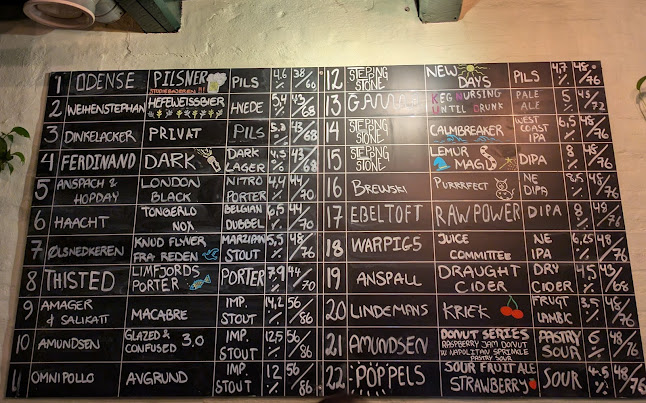 1 ODENSE PILSNER STUDIEBAJEREN!!! PILS 4,6 % 38/66
2 WEIHENSTEPHAN HEFEWEISSBIER HVEDE 5,4 % 43/68
3 DINKELACKER PRIVAT PILS % /68
4 FERDINAND DARK DARK LAGER % 43/68
5 ANSPACH & HOPDAY LONDON BLACK NITRO PORTER 4,4 % 44/70
6 HAACHT TONGERLO NOX BELGIAN DUBBEL 6,5 % 44/70
7 ØLSNEDKEREN KNUD FLYVER FRA REDEN MARZIPAN STOUT 5,5 % 48/76
8 THISTED LIMFJORDS PORTER PORTER 7,9 % 44/70
9 AMAGER & SALIKATT MACABRE IMP. STOUT 14,2 % 56/86
10 AMUNDSEN GLAZED & CONFUSED 3.0 IMP. STOUT 12,5 % 56/86
11 OMNIPOLLO AVGRUND IMP. STOUT 12 % 56/86
12 STEPPING STONE NEW DAYS PILS 4,7 % 48/76
13 GAMMA KEG NURSING UNTIL DRUNK PALE ALE 5 % 48/72
14 STEPPING STONE CALMBREAKER WEST COAST IPA 6,5 % 48/76
15 STEPPING STONE LEMUR MAGUS DIPA 8 % 48/76
16 BREWSKI PURRRFECT NE DIPA 8,5 % 48/76
17 EBELTOFT RAW POWER DIPA 8 % 48/76
18 WARPIGS JUICE COMMITTEE NE IPA 6,25 % 48/76
19 ANSPALL DRAUGHT CIDER DRY CIDER 4,5 % 43/68
20 LINDEMANS KRIEK FRUGT LAMBIC 3,5 % 48/76
21 AMUNDSEN DONUT SERIES RASPBERRY JAM DONUT W NAPOLITAN SPRINKLE PASTRY SOUR PASTRY SOUR 6 % 48/76
22 PÖPPELS SOUR FRUIT ALE STRAWBERRY SOUR 4,5 % 48/76